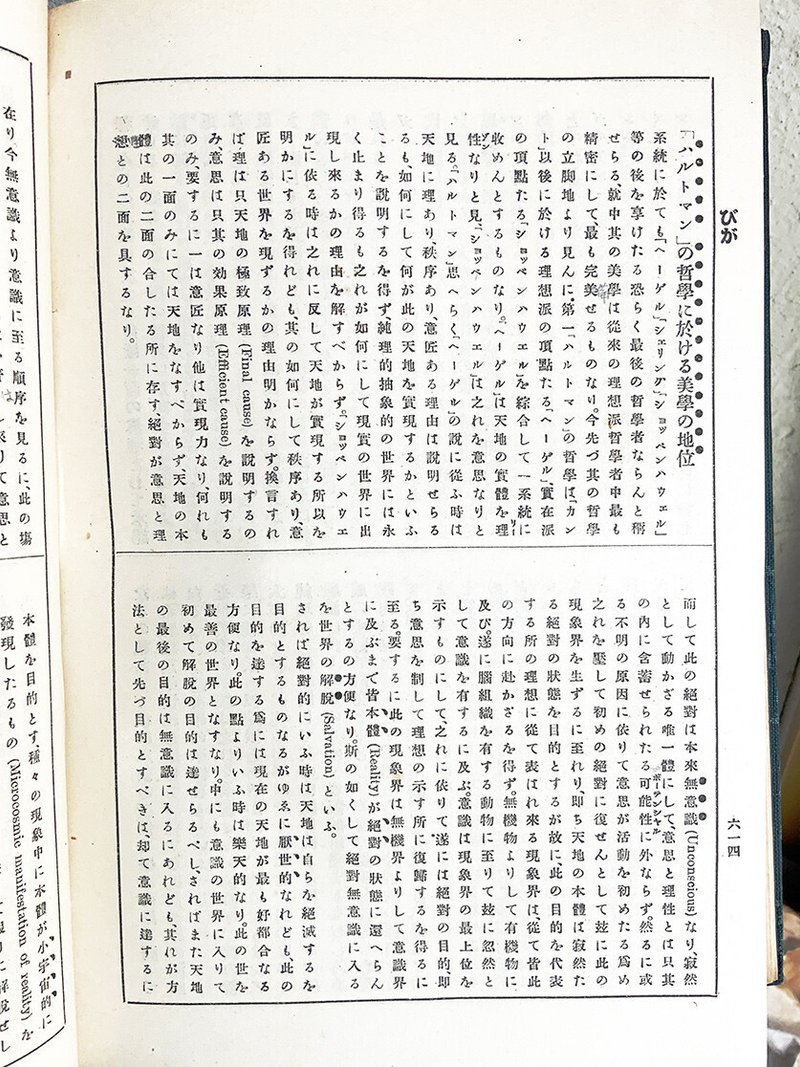 びが
六一四
「ハルトマン」の哲學に於ける美學の地位
系統に於ても「ヘーゲル」「シェリング」「ショッペンハウエル」
等の後を享けたる恐らく最後の哲學者ならんと稱
せらる、就中其の美學は從來の理想派哲學者中最も
精密にして最も完美せるものなり。今先づ其の哲學
の立脚地より見んに。第一「ハルトマン」の哲學は、「カン
ト」以後に於ける理想派の頂點たる「ヘーゲル」、實在派
の頂點たる「ショッペンハウエル」を綜合して一系統に
收めんとするものなり。「ヘーゲル」は天地の實體を理
性なりと見、「ショッペンハウエル」は之れを意思なりと
見る。「ハルトマン」思へらく「ヘーゲル」の說に從ふ時は
天地に理あり、秩序あり、意匠ある理由は說明せらる
るも、如何にして何が此の天地を實現するかといふ
ことを說明するを得ず、純理的抽象的の世界には永
く止まり得るも之れが如何にして現實の世界に出
現し來るかの理由を解すべからず。「ショッペンハウエ
ル」に依る時は之れに反して天地が實現する所以を
明かにするを得れども、其の如何にして秩序あり、意
匠ある世界を現ずるかの理由明かならず。換言すれ
ば理は只天地の極致原理 (Final cause) を說明するの
み、意思は只其の効果原理 (Efficient cause) を說明する
のみ、要するに一は意匠なり他は實現力なり、何れも
其の一面のみにては天地をなすべからず、天地の本
體は此の二面の合したる所に存す、絕對が意思と理
想との二面を具するなり。
而して此の絕對は本來無意識 (Unconscious) なり、寂然
として動かざる唯一體にして、意思と理性とは只其
の內に含蓄せられたる可能性に外ならず。然るに或
る不明の原因に依りて意思が活動を初めたる爲め
之れを壓して初めの絕對に復せんとして玆に此の
現象界を生ずるに至れり、卽ち天地の本體は寂然た
る絕對の狀態を目的とするが故に、此の目的を代表
する所の理想に從て表はれ來る現象界は、從て皆此
の方向に赴かざるを得ず。無機物よりして有機物に
及び。遂に腦組織を有する動物に至りて玆に忽然と
して意識を有するに及ぶ。意識は現象界の最上位を
示すものにして、之れに依りて遂には絕對の目的、卽
ち意思を制して理想の示す所に復歸するを得るに
至る。要するに此の現象界は無機界よりして意識界
に及ぶまで皆本體 (Reality) が絕對の狀態に還へらん
とするの方便なり。斯の如くして絕對無意識に入る
を世界の解脫 (Salvation) といふ。
されば絕對的にいふ時は天地は自らを絕滅するを
目的とするものなるがゆゑに厭世的なれども此の
目的を達する爲には現在の天地が最も好都合なる
方便なり。此の點よりいふ時は樂天的なり。此の世を
最善の世界となすなり。中にも意識の世界に入りて
初めて解脫の目的は達せらるべし、さればまた天地
の最後の目的は無意識に入るにあれども、其れが方
法として先づ目的とすべきは、却て意識に達するに
在り。今無意識より意識に至る順序を見るに、此の場
本體を目的とす、種々の現象中に本體が小宇宙的に
發現したるもの (Microcosmic manifestation of reality) を